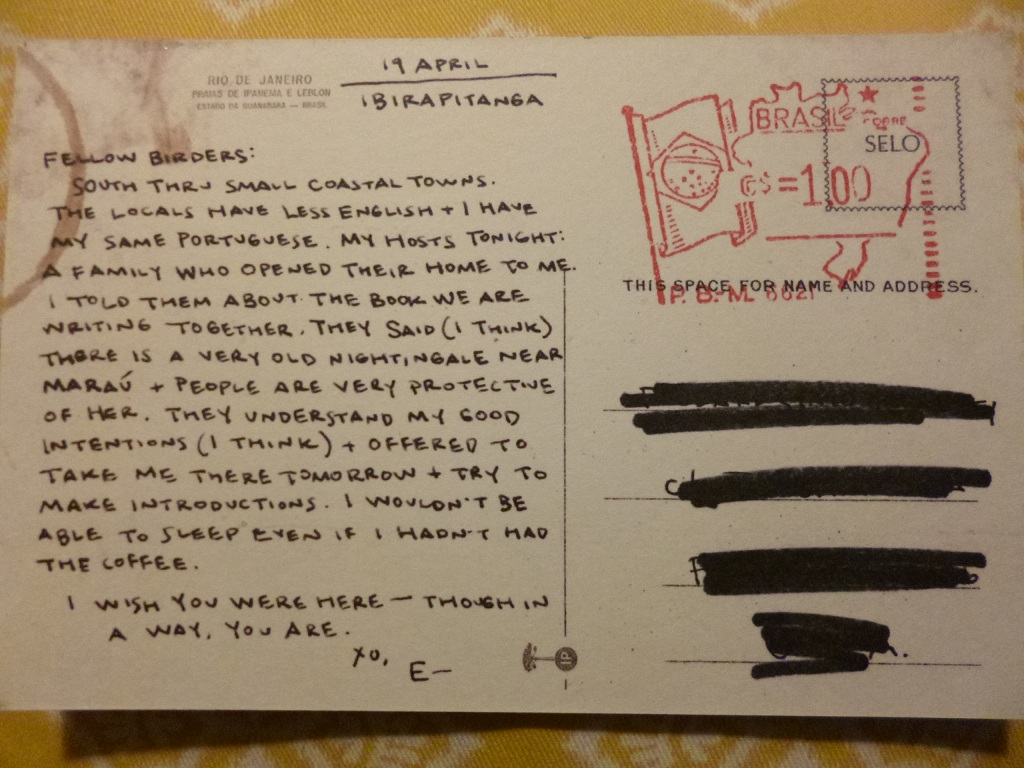 RIO DE JANEIRO
PRAIAS DE IPANEMA E LEBLON
ESTADO DA GUANABARA — BRASIL
19 APRIL
IBIRAPITANGA
FELLOW BIRDERS:
SOUTH THRU SMALL COASTAL TOWNS.
THE LOCALS HAVE LESS ENGLISH + I HAVE
MY SAME PORTUGUESE. MY HOSTS TONIGHT:
A FAMILY WHO OPENED THEIR HOME TO ME.
I TOLD THEM ABOUT THE BOOK WE ARE
WRITING TOGETHER. THEY SAID (I THINK)
THERE IS A VERY OLD NIGHTINGALE NEAR
MARAÚ + PEOPLE ARE VERY PROTECTIVE
OF HER. THEY UNDERSTAND MY GOOD
INTENTIONS (I THINK) + OFFERED TO
TAKE ME THERE TOMORROW + TRY TO
MAKE INTRODUCTIONS. I WOULDN'T BE
ABLE TO SLEEP EVEN IF I HADN'T HAD
THE COFFEE.
I WISH YOU WERE HERE — THOUGH IN
A WAY, YOU ARE.
XO,
E—
BRASIL
SELO
=1,00
THIS SPACE FOR NAME AND ADDRESS.
P. B.-M. 6621
IP